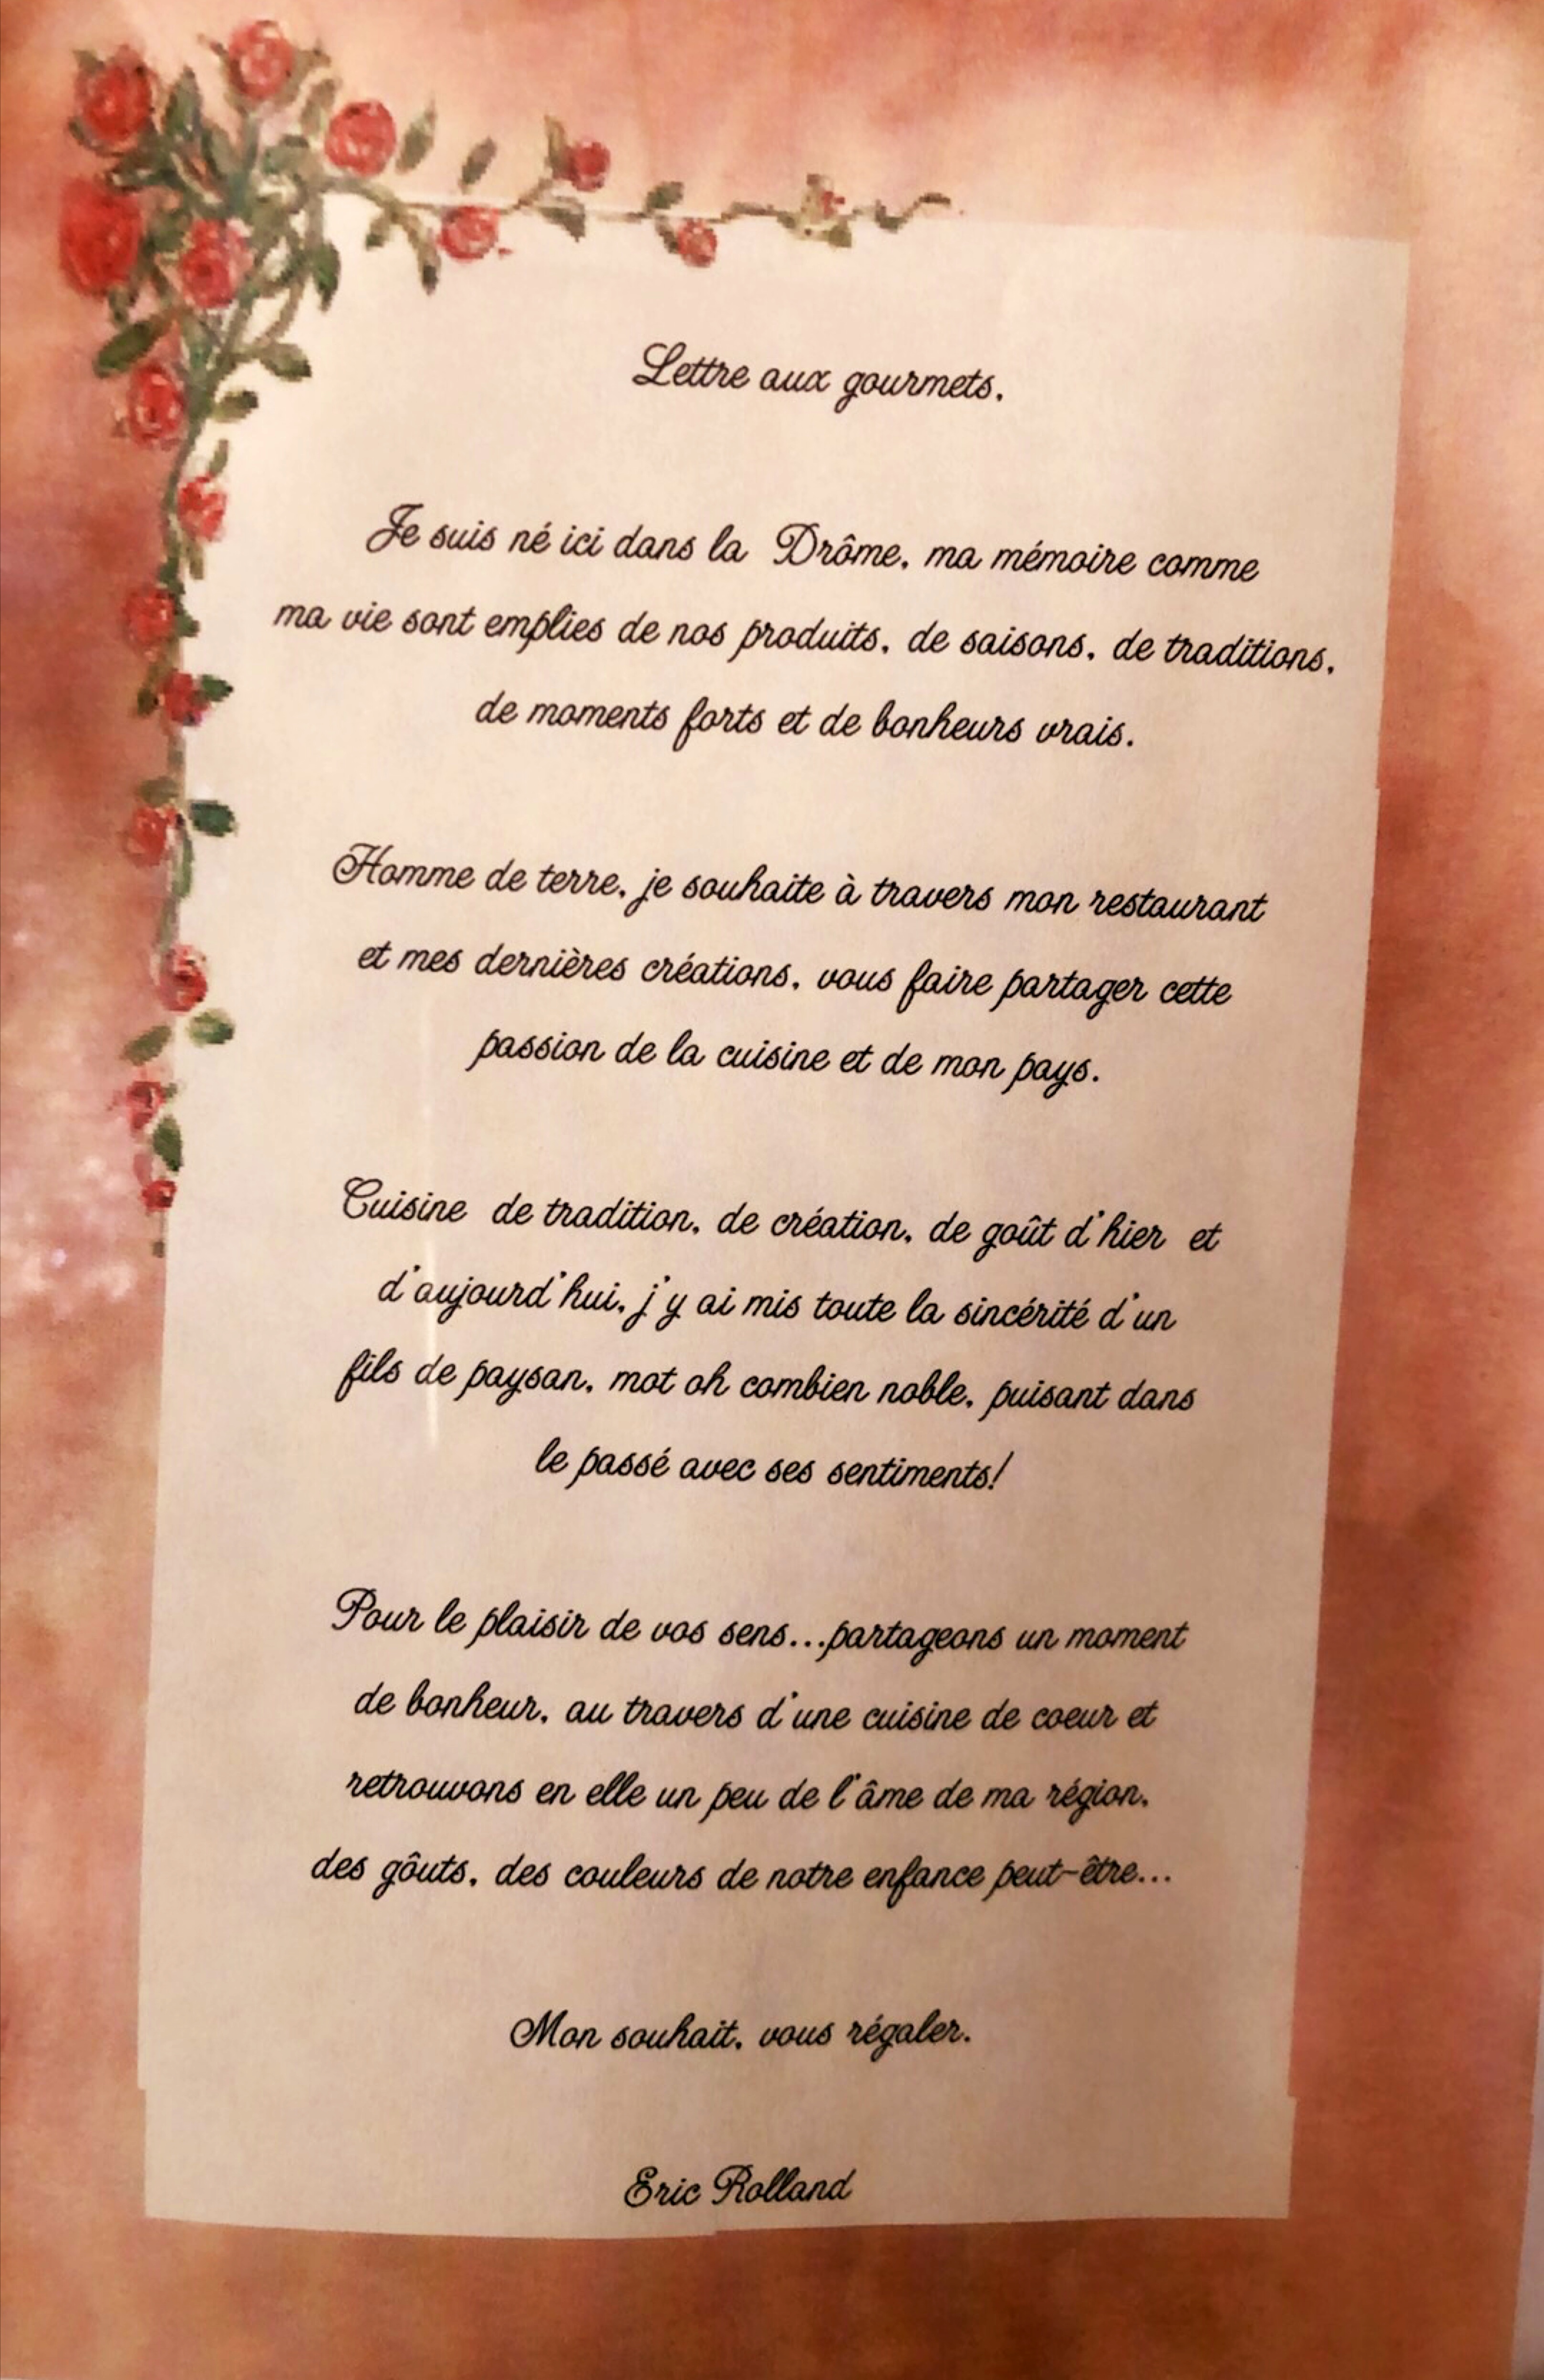 Lettre aux gourmets.
Je suis né ici dans la Drôme, ma mémoire comme
ma vie sont emplies de nos produits, de saisons, de traditions,
de moments forts et de bonheurs vrais.
Homme de terre, je souhaite à travers mon restaurant
et mes dernières créations, vous faire partager cette
passion de la cuisine et de mon pays.
Cuisine de tradition, de création, de goût d'hier et
d'aujourd'hui, j'y ai mis toute la sincérité d'un
fils de paysan, mot oh combien noble, puisant dans
le passé avec ses sentiments!
Pour le plaisir de vos sens...partageons un moment
de bonheur, au travers d'une cuisine de coeur et
retrouvons en elle un peu de l'âme de ma région,
des gôuts, des couleurs de notre enfance peut-être...
Mon souhait, vous régaler.
Eric Rolland